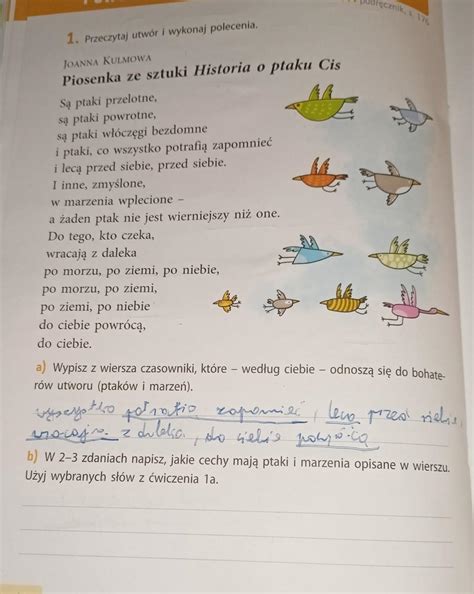 podręcznik, s. 176
1. Przeczytaj utwór i wykonaj polecenia.
JOANNA KULMOWA
Piosenka ze sztuki Historia o ptaku Cis
Są ptaki przelotne,
są ptaki powrotne,
są ptaki włóczęgi bezdomne
i ptaki, co wszystko potrafią zapomnieć
i lecą przed siebie, przed siebie.
I inne, zmyślone,
w marzenia wplecione –
a żaden ptak nie jest wierniejszy niż one.
Do tego, kto czeka,
wracają z daleka
po morzu, po ziemi, po niebie,
po morzu, po ziemi,
po ziemi, po niebie
do ciebie powrócą,
do ciebie.
a) Wypisz z wiersza czasowniki, które – według ciebie – odnoszą się do bohate-
rów utworu (ptaków i marzeń).
wszystko potrafią zapomnieć, lecą przed siebie,
wracają z daleka, do ciebie powrócą
b) W 2–3 zdaniach napisz, jakie cechy mają ptaki i marzenia opisane w wierszu.
Użyj wybranych słów z ćwiczenia 1a.